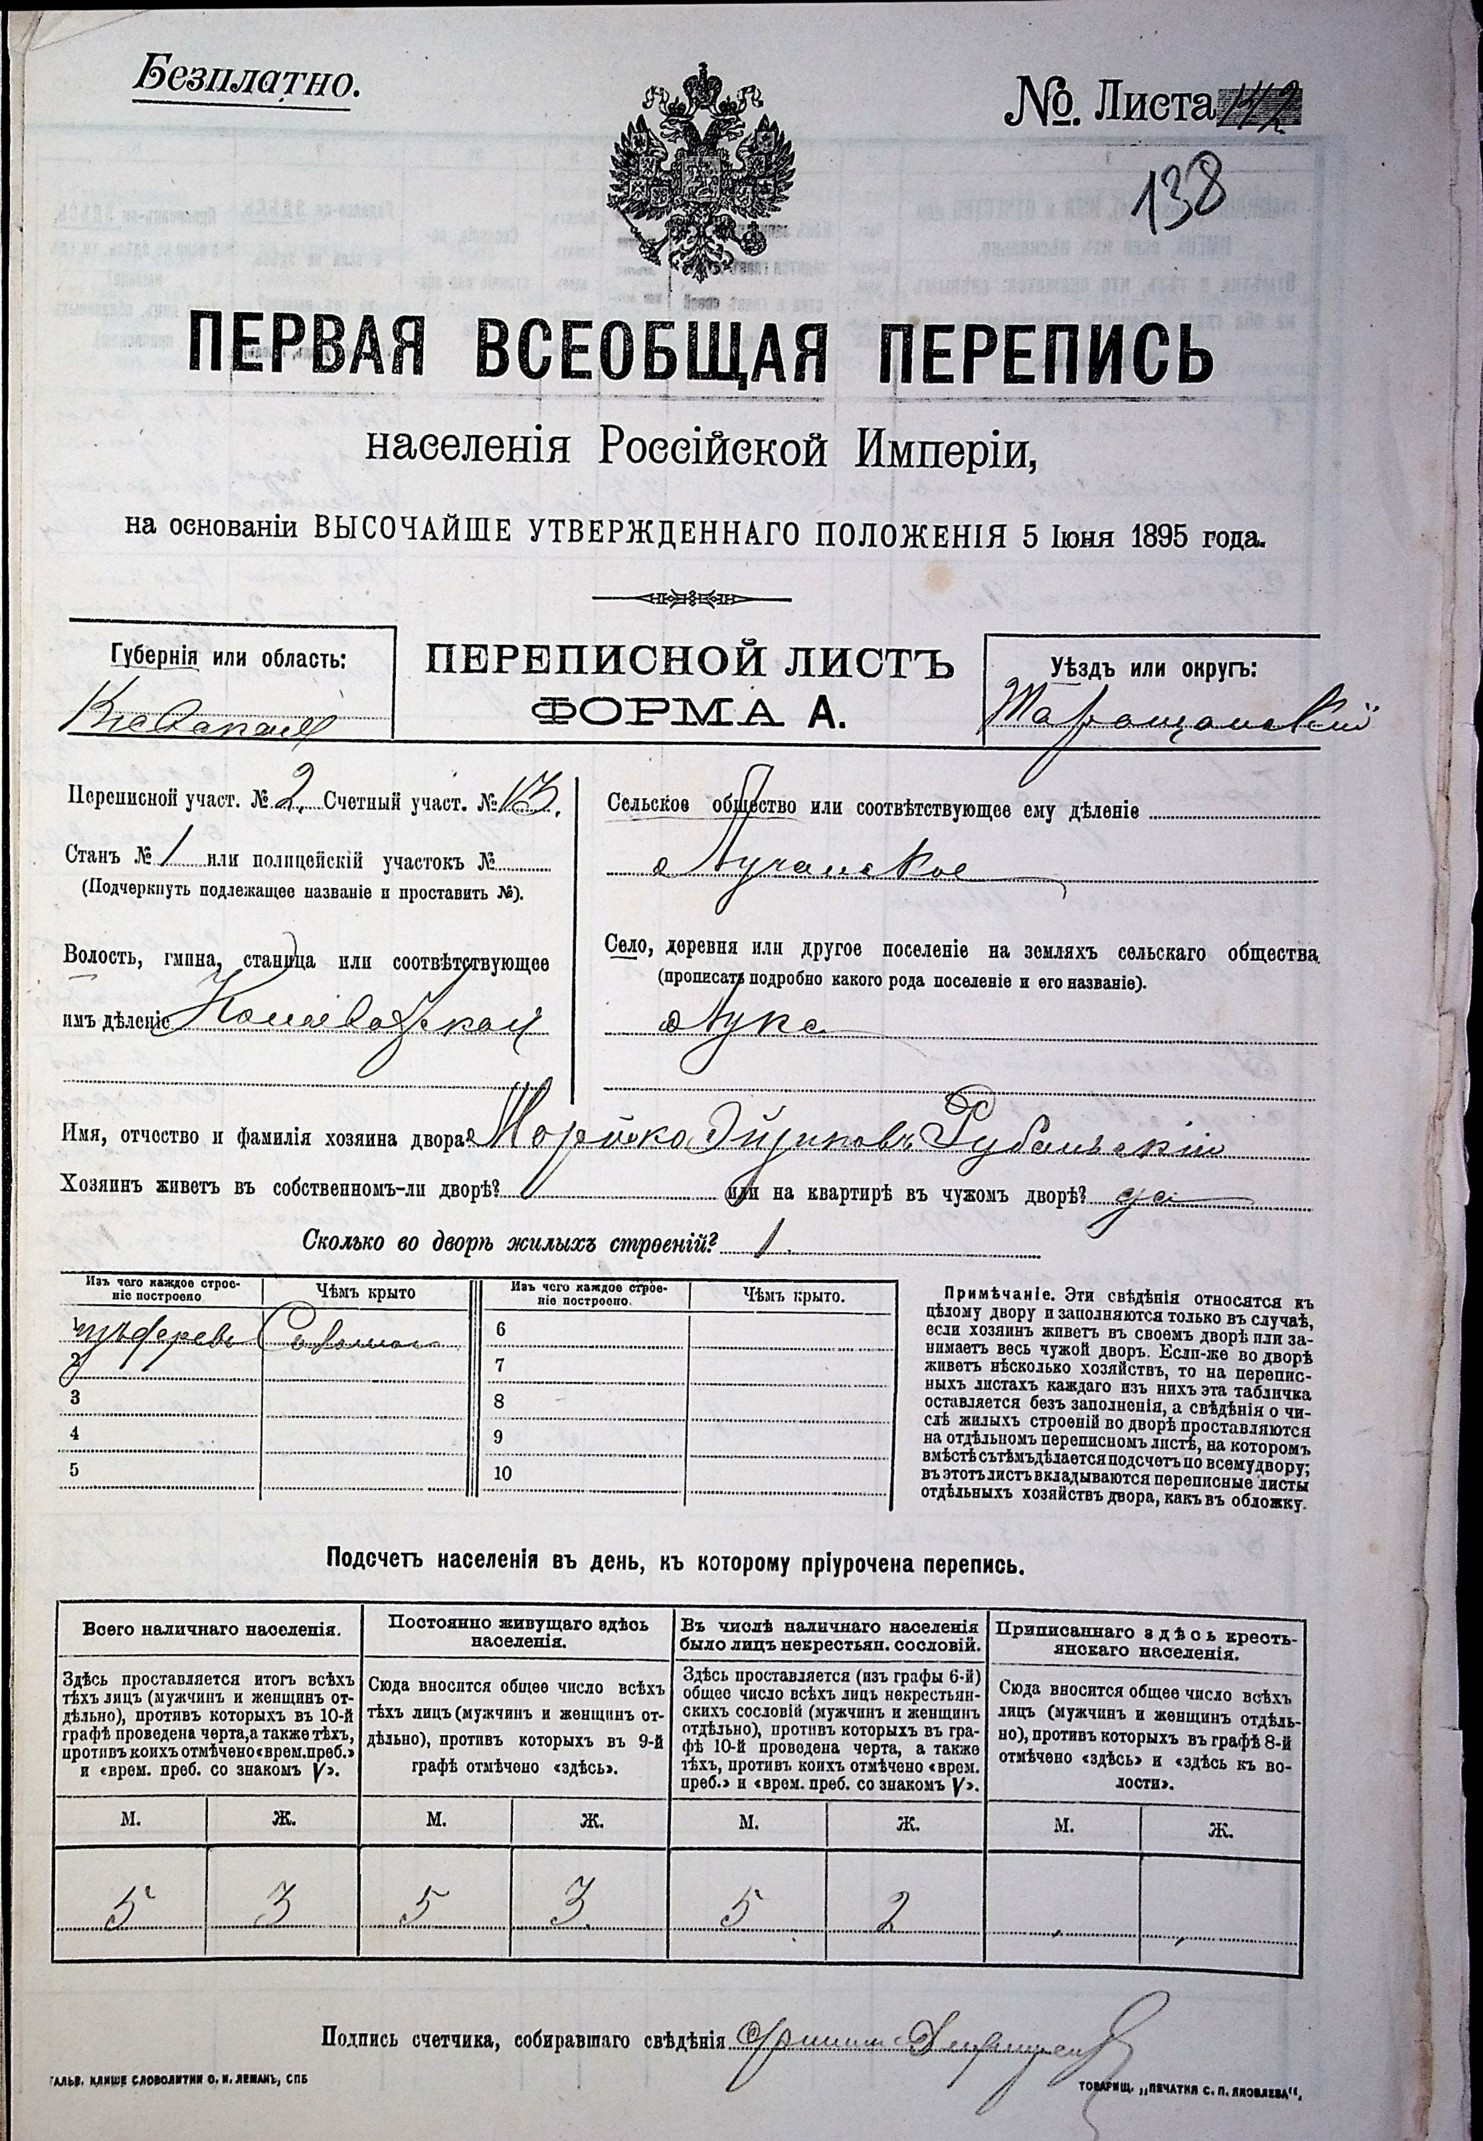 Безплатно.
№. Листа 142
138
ПЕРВАЯ ВСЕОБЩАЯ ПЕРЕПИСЬ
населенія Россійской Имперіи,
на основаніи ВЫСОЧАЙШЕ УТВЕРЖДЕННАГО ПОЛОЖЕНІЯ 5 Іюня 1895 года.
Губернія или область:
Кіевская
ПЕРЕПИСНОЙ ЛИСТЪ
ФОРМА А.
Уѣздъ или округъ:
Таращанскій
Переписной участ. № 2, Счетный участ. № 13,
Станъ № 1 или полицейскій участокъ №
(Подчеркнуть подлежащее названіе и проставить №).
Волость, гмина, станица или соотвѣтствующее
имъ дѣленіе
Сельское общество или соотвѣтствующее ему дѣленіе
Лучанское
Село, деревня или другое поселеніе на земляхъ сельскаго общества
(прописать подробно какого рода поселеніе и его названіе).
Лука
Имя, отчество и фамилія хозяина двора
Хозяинъ живетъ въ собственномъ-ли дворѣ? или на квартирѣ въ чужомъ дворѣ? да
Сколько во дворѣ жилыхъ строеній? 1.
Изъ чего каждое строеніе построено
Чѣмъ крыто
Изъ чего каждое строеніе построено.
Чѣмъ крыто.
1 изъ дерева Соломою
2
3
4
5
6
7
8
9
10
Примѣчаніе. Эти свѣдѣнія относятся къ
цѣлому двору и заполняются только въ случаѣ,
если хозяинъ живетъ въ своемъ дворѣ или за-
нимаетъ весь чужой дворъ. Если-же во дворѣ
живетъ нѣсколько хозяйствъ, то на перепис-
ныхъ листахъ каждаго изъ нихъ эта табличка
оставляется безъ заполненія, а свѣдѣнія о чи-
слѣ жилыхъ строеній во дворѣ проставляются
на отдѣльномъ переписномъ листѣ, на которомъ
вмѣстѣ съ тѣмъ дѣлается подсчетъ по всему двору;
въ этотъ листъ вкладываются переписные листы
отдѣльныхъ хозяйствъ двора, какъ въ обложку.
Подсчетъ населенія въ день, къ которому пріурочена перепись.
Всего наличнаго населенія.
Здѣсь проставляется итогъ всѣхъ
тѣхъ лицъ (мужчинъ и женщинъ от-
дѣльно), противъ которыхъ въ 10-й
графѣ проведена черта, а также тѣхъ,
противъ коихъ отмѣчено «врем. преб.»
и «врем. преб. со знакомъ V».
Постоянно живущаго здѣсь
населенія.
Сюда вносится общее число всѣхъ
тѣхъ лицъ (мужчинъ и женщинъ от-
дѣльно), противъ которыхъ въ 9-й
графѣ отмѣчено «здѣсь».
Въ числѣ наличнаго населенія
было лицъ некрестьян. сословій.
Здѣсь проставляется (изъ графы 6-й)
общее число всѣхъ лицъ некрестьян-
скихъ сословій (мужчинъ и женщинъ
отдѣльно), противъ которыхъ въ гра-
фѣ 10-й проведена черта, а также
тѣхъ, противъ коихъ отмѣчено «врем.
преб.» и «врем. преб. со знакомъ V».
Приписаннаго здѣсь кресть-
янскаго населенія.
Сюда вносится общее число всѣхъ
лицъ (мужчинъ и женщинъ отдѣль-
но), противъ которыхъ въ графѣ 8-й
отмѣчено «здѣсь» и «здѣсь къ во-
лости».
М. Ж. М. Ж. М. Ж. М. Ж.
5 3 5 3 5 2
Подпись счетчика, собиравшаго свѣдѣнія
ГАЛЬВ. КЛИШЕ СЛОВОЛИТНИ О. И. ЛЕМАНЪ, СПБ
ТОВАРИЩ. „ПЕЧАТНЯ С. П. ЯКОВЛЕВА“,